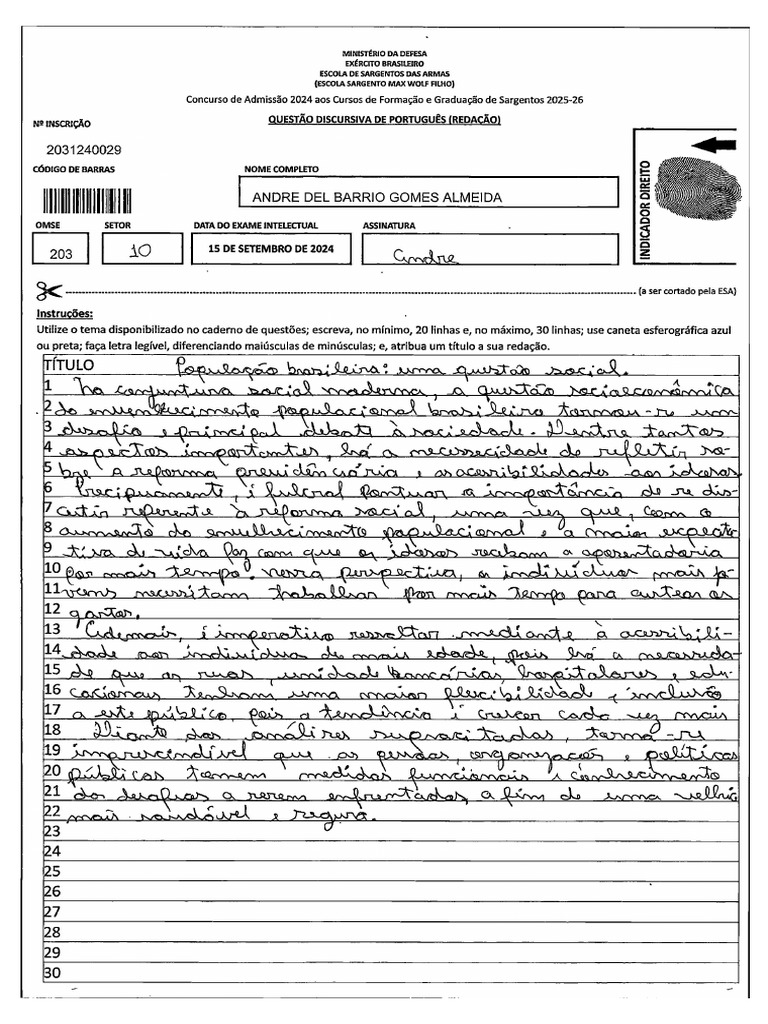 MINISTÉRIO DA DEFESA
EXÉRCITO BRASILEIRO
ESCOLA DE SARGENTOS DAS ARMAS
(ESCOLA SARGENTO MAX WOLF FILHO)
Concurso de Admissão 2024 aos Cursos de Formação e Graduação de Sargentos 2025-26
QUESTÃO DISCURSIVA DE PORTUGUÊS (REDAÇÃO)
Nº INSCRIÇÃO
2031240029
CÓDIGO DE BARRAS
NOME COMPLETO
ANDRE DEL BARRIO GOMES ALMEIDA
INDICADOR DIREITO
OMSE SETOR DATA DO EXAME INTELECTUAL ASSINATURA
203 10 15 DE SETEMBRO DE 2024 Andre
(a ser cortado pela ESA)
Instruções:
Utilize o tema disponibilizado no caderno de questões; escreva, no mínimo, 20 linhas e, no máximo, 30 linhas; use caneta esferográfica azul
ou preta; faça letra legível, diferenciando maiúsculas de minúsculas; e, atribua um título a sua redação.
TÍTULO População brasileira: uma questão social.
1 Na conjuntura social moderna, a questão socioeconômica
2 do envenlhecimento populacional brasileiro tornou-se um
3 desafio e principal debate à sociedade. Dentre tantos
4 aspectos importantes, há a necessidade de refletir so-
5 bre a reforma previdênciária e as acessibilidades aos idosos
6 Precipuamente, é fulcral pontuar a importância de se dis-
7 cutir referente à reforma social, uma vez que, com o
8 aumento do envelhecimento populacional e a maior expecta
9 tiva de vida faz com que os idosos recebam a aposentadoria
10 por mais tempo. nessa perspectiva, os indivíduos mais jo-
11 vens necessitam trabalhar por mais tempo para custear os
12 gastos.
13 Ademais, é imperativo ressaltar mediante à acessibili-
14 dade aos indivíduos de mais idade, pois há a necessida-
15 de que as ruas, unidade bancárias, hospitalares e edu-
16 cacionais tenham uma maior flexibilidade e inclusão
17 a este público, pois a tendência é crescer cada vez mais
18 Diante das análises supracitadas, torna-se
19 imprescindível que as pessoas, organizações e políticas
20 públicas tomem medidas funcionais e conhecimento
21 dos desafios a serem enfrentados, a fim de uma velhic
22 mais saudável e segura.
23
24
25
26
27
28
29
30